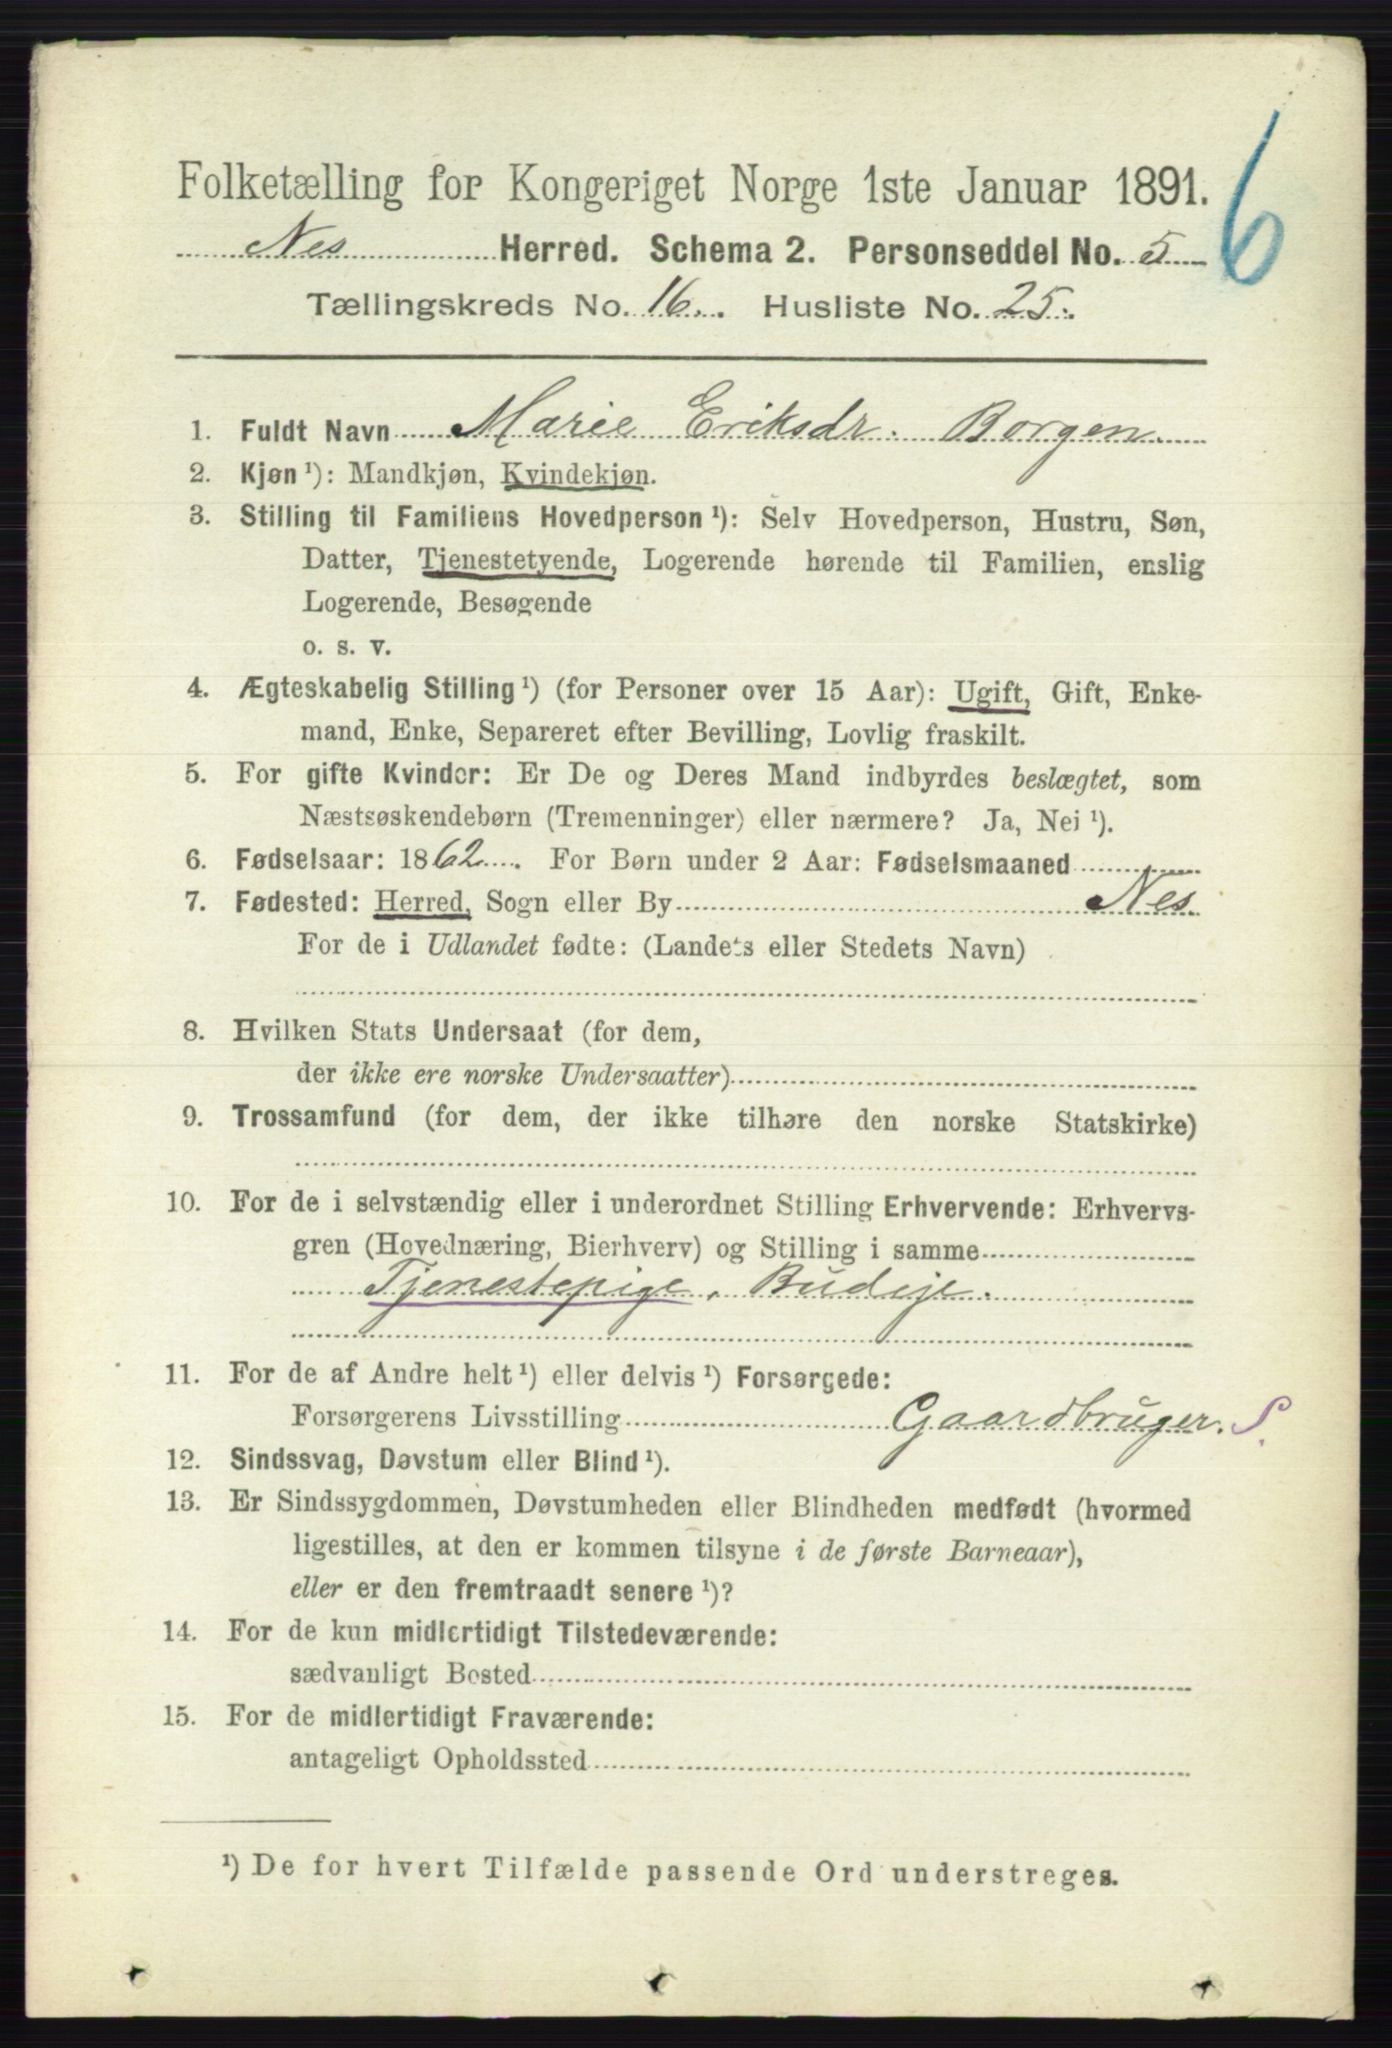 6
Folketælling for Kongeriget Norge 1ste Januar 1891.
Nes Herred. Schema 2. Personseddel No. 5
Tællingskreds No. 16. Husliste No. 25.
1. Fuldt Navn Marie Eriksdr. Borgen.
2. Kjøn ¹): Mandkjøn, Kvindekjøn.
3. Stilling til Familiens Hovedperson ¹): Selv Hovedperson, Hustru, Søn,
Datter, Tjenestetyende, Logerende hørende til Familien, enslig
Logerende, Besøgende
o. s. v.
4. Ægteskabelig Stilling ¹) (for Personer over 15 Aar): Ugift, Gift, Enke-
mand, Enke, Separeret efter Bevilling, Lovlig fraskilt.
5. For gifte Kvinder: Er De og Deres Mand indbyrdes beslægtet, som
Næstsøskendebørn (Tremenninger) eller nærmere? Ja, Nei ¹).
6. Fødselsaar: 1862. For Børn under 2 Aar: Fødselsmaaned
7. Fødested: Herred, Sogn eller By Nes.
For de i Udlandet fødte: (Landets eller Stedets Navn)
8. Hvilken Stats Undersaat (for dem,
der ikke ere norske Undersaatter)
9. Trossamfund (for dem, der ikke tilhøre den norske Statskirke)
10. For de i selvstændig eller i underordnet Stilling Erhvervende: Erhvervs-
gren (Hovednæring, Bierhverv) og Stilling i samme
Tjenestepige, Budeje.
11. For de af Andre helt ¹) eller delvis ¹) Forsørgede:
Forsørgerens Livsstilling Gaardbruger. S.
12. Sindssvag, Døvstum eller Blind ¹).
13. Er Sindssygdommen, Døvstumheden eller Blindheden medfødt (hvormed
ligestilles, at den er kommen tilsyne i de første Barneaar),
eller er den fremtraadt senere ¹)?
14. For de kun midlertidigt Tilstedeværende:
sædvanligt Bosted
15. For de midlertidigt Fraværende:
antageligt Opholdssted
¹) De for hvert Tilfælde passende Ord understreges.